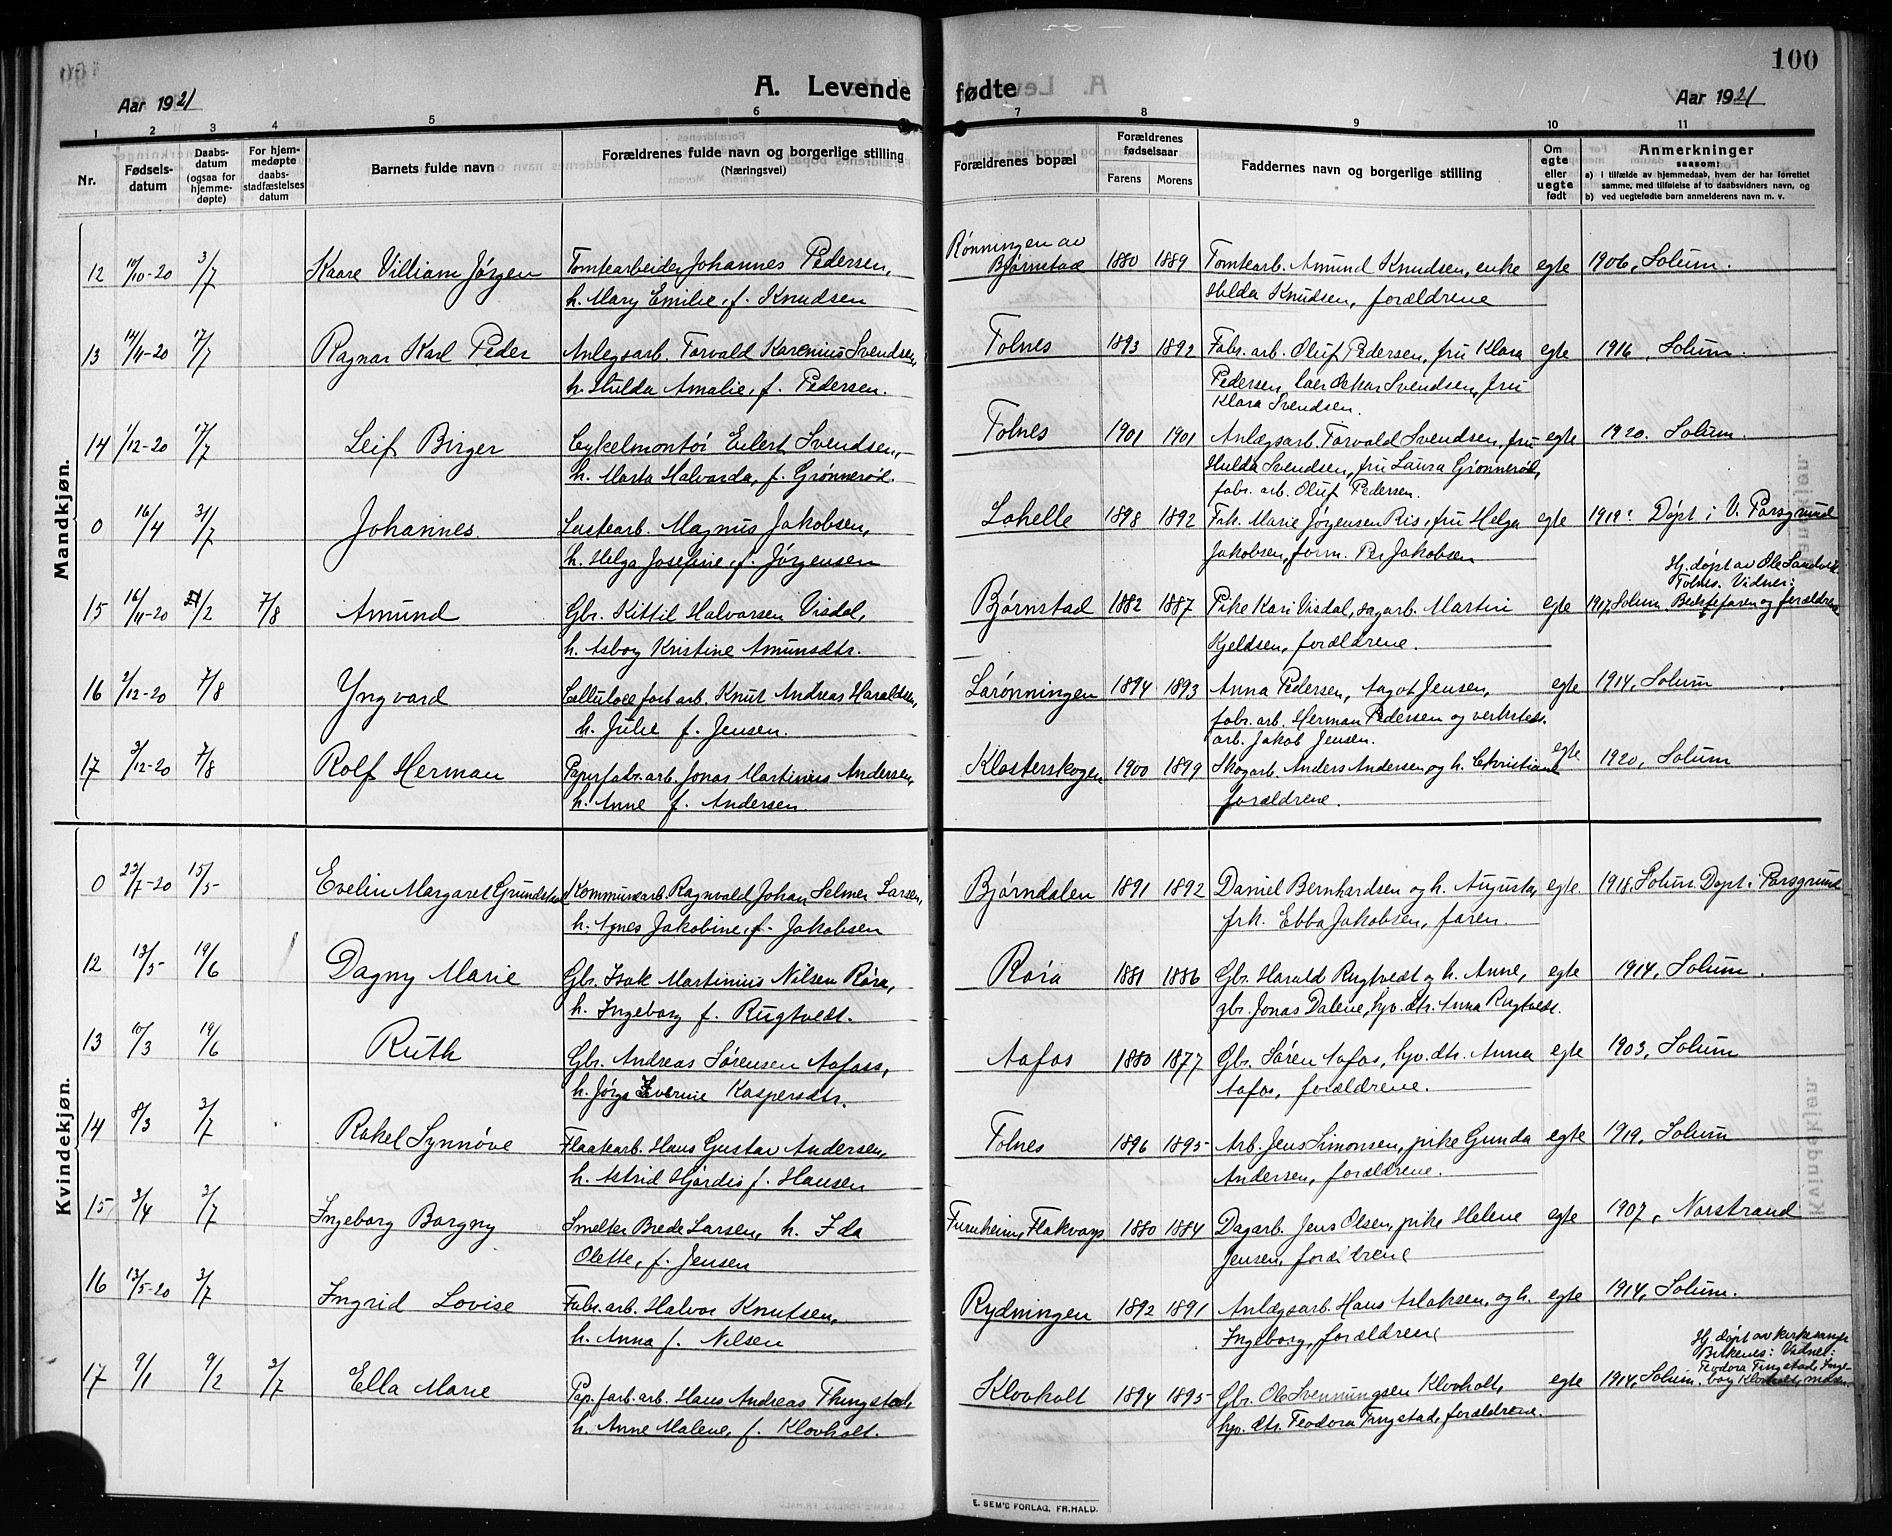 100
A. Levende fødte
Aar 1921
Aar 1921
1 2 3 4 5 6 7 8 9 10 11
Nr.
Fødsels-
datum
Daabs-
datum
(ogsaa for
hjemme-
døpte)
For hjem-
medøpte
daabs-
stadfæstelses
datum
Barnets fulde navn
Forældrenes fulde navn og borgerlige stilling
(Næringsvei)
Forældrenes bopæl
Forældrenes
fødselsaar
Farens Morens
Faddernes navn og borgerlige stilling
Om
egte
eller
uegte
født
Anmerkninger
saasom:
a) i tilfælde av hjemmedaab, hvem der har forrettet
samme, med tilføielse af to daabsvidners navn, og
b) ved uegtefødte barn anmelderens navn m. v.
Mandkjøn.
12 10/10-20 3/7 Kaare Villiam Jørgen Tomtearbeider Johannes Pedersen, Rønningen av Bjørnstad 1880 1889 Tomtearb. Amund Knudsen, enke egte 1906, Solum.
h. Mary Emilie, f. Knudsen Hilda Knudsen, forældrene
13 14/11-20 17/7 Ragnar Karl Peder Anlegsarb. Torvald Karenius Svendsen, Tolnes 1893 1892 Fabr. arb. Oluf Pedersen, fru Klara egte 1916, Solum.
h. Hulda Amalie, f. Pedersen. Pedersen, Oskar Svendsen, fru
Klara Svendsen.
14 1/12-20 17/7 Leif Birger Cykelmontør Eilert Svendsen, Tolnes 1901 1901 Anlægsarb. Torvald Svendsen, fru egte 1920. Solum.
h. Marta Halvarda, f. Grønnerød. Hulda Svendsen, fru Laura Grønnerød,
fabr. arb. Oluf Pedersen.
0 16/4 31/7 Johannes. Lastearb. Magnus Jakobsen, Lahelle 1898 1892 Frk. Marie Jørgensen Ris, fru Helga egte 1919: Døpt i V. Porsgrund
h. Helga Josefine, f. Jørgensen Jakobsen, form. Per Jakobsen
Hj. døpt av Ole Sandvik
Tolnes. Vidner:
15 16/11-20 /2 7/8 Amund Gbr. Kittil Halvorsen Visdal, Bjørnstad 1882 1887 Pike Kari Visdal, sagarb. Martin egte 1907, Solum. Bedstefaren og forældrene
h. Asborg Kristine Amunsdtr. Kjeldsen, forældrene.
16 2/12-20 7/8 Yngvard Cellulosefabr arb. Knut Andreas Haraldsen, Larønningen 1894 1893 Anna Pedersen, Aagot Jensen, egte 1914, Solum
h. Julie f. Jensen. fabr. arb. Herman Pedersen og verksteds.
arb. Jakob Jensen.
17 3/12-20 7/8 Rolf Herman Papirfabr. arb. Jonas Martinius Andersen, Klosterskogen 1900 1899 Skogarb. Anders Andersen og h. Christiane egte 1920, Solum
h. Anne f. Andersen. forældrene.
Kvindekjøn.
0 22/7-20 15/5 Evelin Margaret Grundstad Kommunearb. Ragnvald Johan Selmer Larsen, Bjørndalen 1891 1892 Daniel Bernhardsen og h. Augusta, egte 1918. Solum. Døpt i Porsgrund
h. Agnes Jakobine, f. Jakobsen frk. Ebba Jakobsen, faren.
12 13/5 19/6 Dagny Marie Gbr. Isak Martinius Nilsen Røra, Røra 1881 1886 Gbr. Harald Rugtvedt og h. Anne, egte 1914, Solum.
h. Ingeborg f. Rugtvedt. gbr. Jonas Dalene, hjv. dtr. Anna Rugtvedt.
13 10/3 19/6 Ruth Gbr. Andreas Sørensen Aafoss, Aafos 1880 1877 Gbr. Søren Aafos, hjv. dtr. Anna egte 1903, Solum
h. Jørga Severine Kaspersdtr. Aafos, forældrene.
14 8/3 3/7 Rakel Synnøve Flaatearb. Hans Gustav Andersen, Tolnes 1896 1895 Arb. Jens Simonsen, pike Gunda egte 1919, Solum
h. Astrid Hjørdis f. Hansen Andersen, forældrene.
15 3/4 3/7 Ingeborg Borgny Smelter Brede Larsen, h. Ida Furuheim, Flakvarp 1880 1884 Dagarb. Jens Olsen, pike Helene egte 1907, Norstrand
Olette, f. Jensen Jensen, forældrene
16 13/5-20 3/7 Ingrid Lovise Fabr. arb. Halvor Knutsen, Rydningen 1892 1891 Anlægsarb. Hans Aslaksen, og h. egte 1914, Solum.
h. Anna f. Nilsen Ingeborg, forældrene
Hj. døpt av kirkesanger
Birkenes: Vidner:
Teodora Tingstad, Inge-
17 9/1 9/2 3/7 Ella Marie Pap. fabr. arb. Hans Andreas Thingstad, Klovholt 1894 1895 Gbr. Ole Svennungsen Klovholt, egte 1914, Solum. borg Klovholt, moren.
h. Anne Malene, f. Klovholt. hjv. dtr. Teodora Tingstad, forældrene.
E. SEM'S FORLAG, FR.HALD.